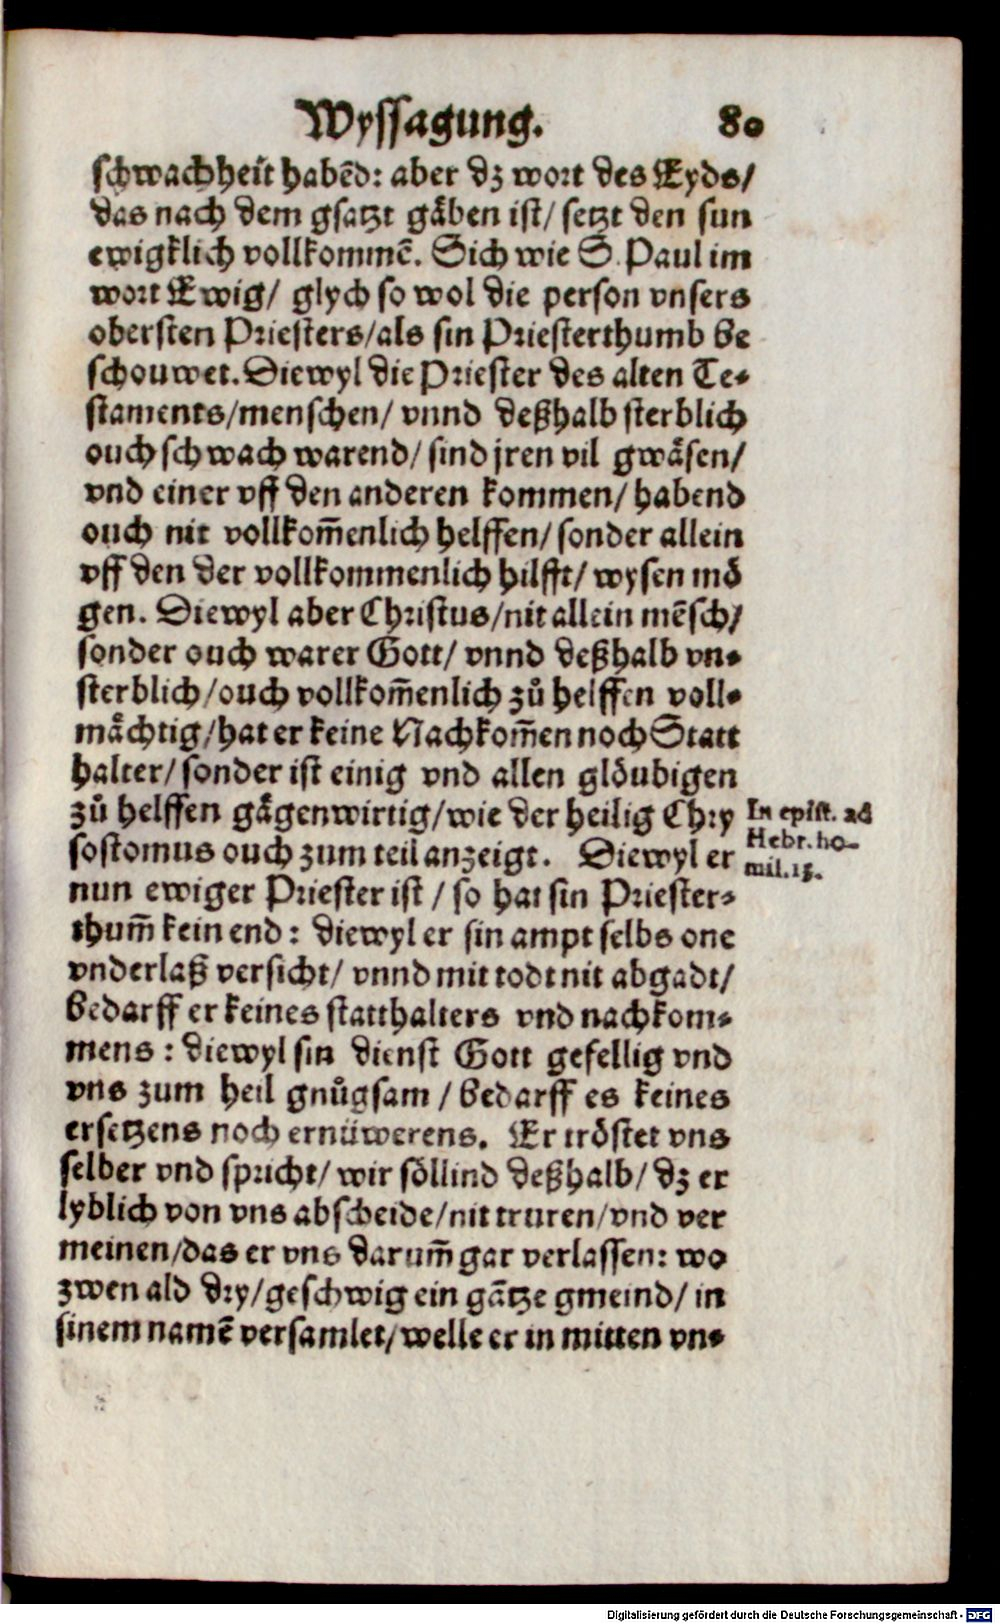 Wyssagung. 80
schwachheit habēd: aber dz wort des Eyds/
das nach dem gsatzt gäben ist/ setzt den sun
ewigklich vollkommē. Sich wie S. Paul im
wort Ewig/ glych so wol die person vnsers
obersten Priesters/als sin Priesterthumb be
schouwet. Diewyl die Priester des alten Te-
staments/menschen/ vnnd deßhalb sterblich
ouch schwach warend/ sind jren vil gwäsen/
vnd einer vff den anderen kommen/ habend
ouch nit vollkom̄enlich helffen/ sonder allein
vff den der vollkommenlich hilfft/ wysen mö
gen. Diewyl aber Christus/nit allein mēsch/
sonder ouch warer Gott/ vnnd deßhalb vn-
sterblich/ouch vollkom̄enlich zů helffen voll-
mächtig/hat er keine Nachkom̄en noch Statt
halter/ sonder ist einig vnd allen glöubigen
zů helffen gägenwirtig/wie der heilig Chry
sostomus ouch zum teil anzeigt. Diewyl er
nun ewiger Priester ist / so hat sin Priester-
thum̄ kein end: diewyl er sin ampt selbs one
vnderlaß versicht/ vnnd mit todt nit abgadt/
bedarff er keines statthalters vnd nachkom-
mens: diewyl sin dienst Gott gefellig vnd
vns zum heil gnůgsam / bedarff es keines
ersetzens noch ernüwerens. Er tröstet vns
selber vnd spricht/ wir söllind deßhalb/ dz er
lyblich von vns abscheide/nit truren/vnd ver
meinen/das er vns darum̄ gar verlassen: wo
zwen ald dry/geschwig ein gātze gmeind/ in
sinem namē versamlet/welle er in mitten vn-
In epist. ad
Hebr. ho-
mil. 13.
Digitalisierung gefördert durch die Deutsche Forschungsgemeinschaft - DFG